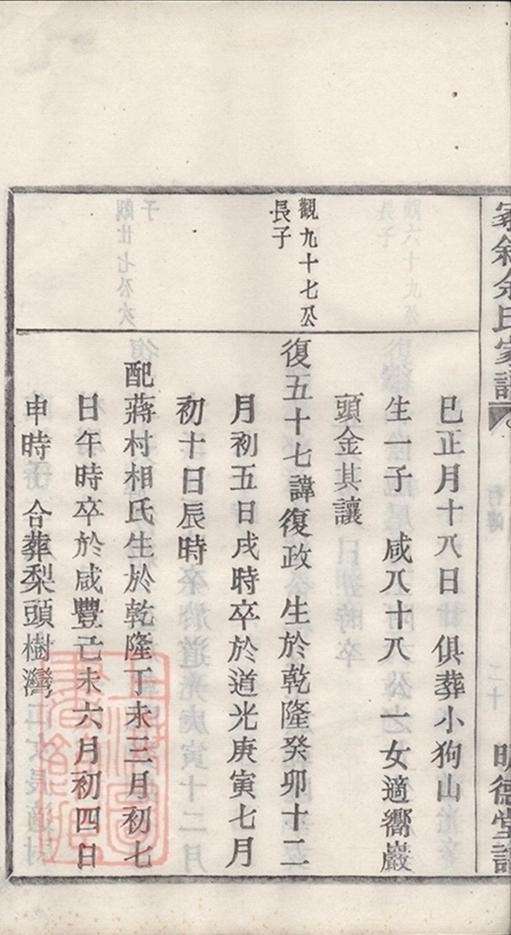 余氏家譜
明德堂譜
巳正月十八日 俱葬小狗山
生一子 咸八十八 一女適嚮巖
頭金其讓
觀九十七公
長子
復五十七諱復政 生於乾隆癸卯十二
月初五日戌時卒於道光庚寅七月
初十日辰時
配蔣村相氏生於乾隆丁未三月初七
日午時卒於咸豐己未六月初四日
申時子 合葬梨頭樹灣